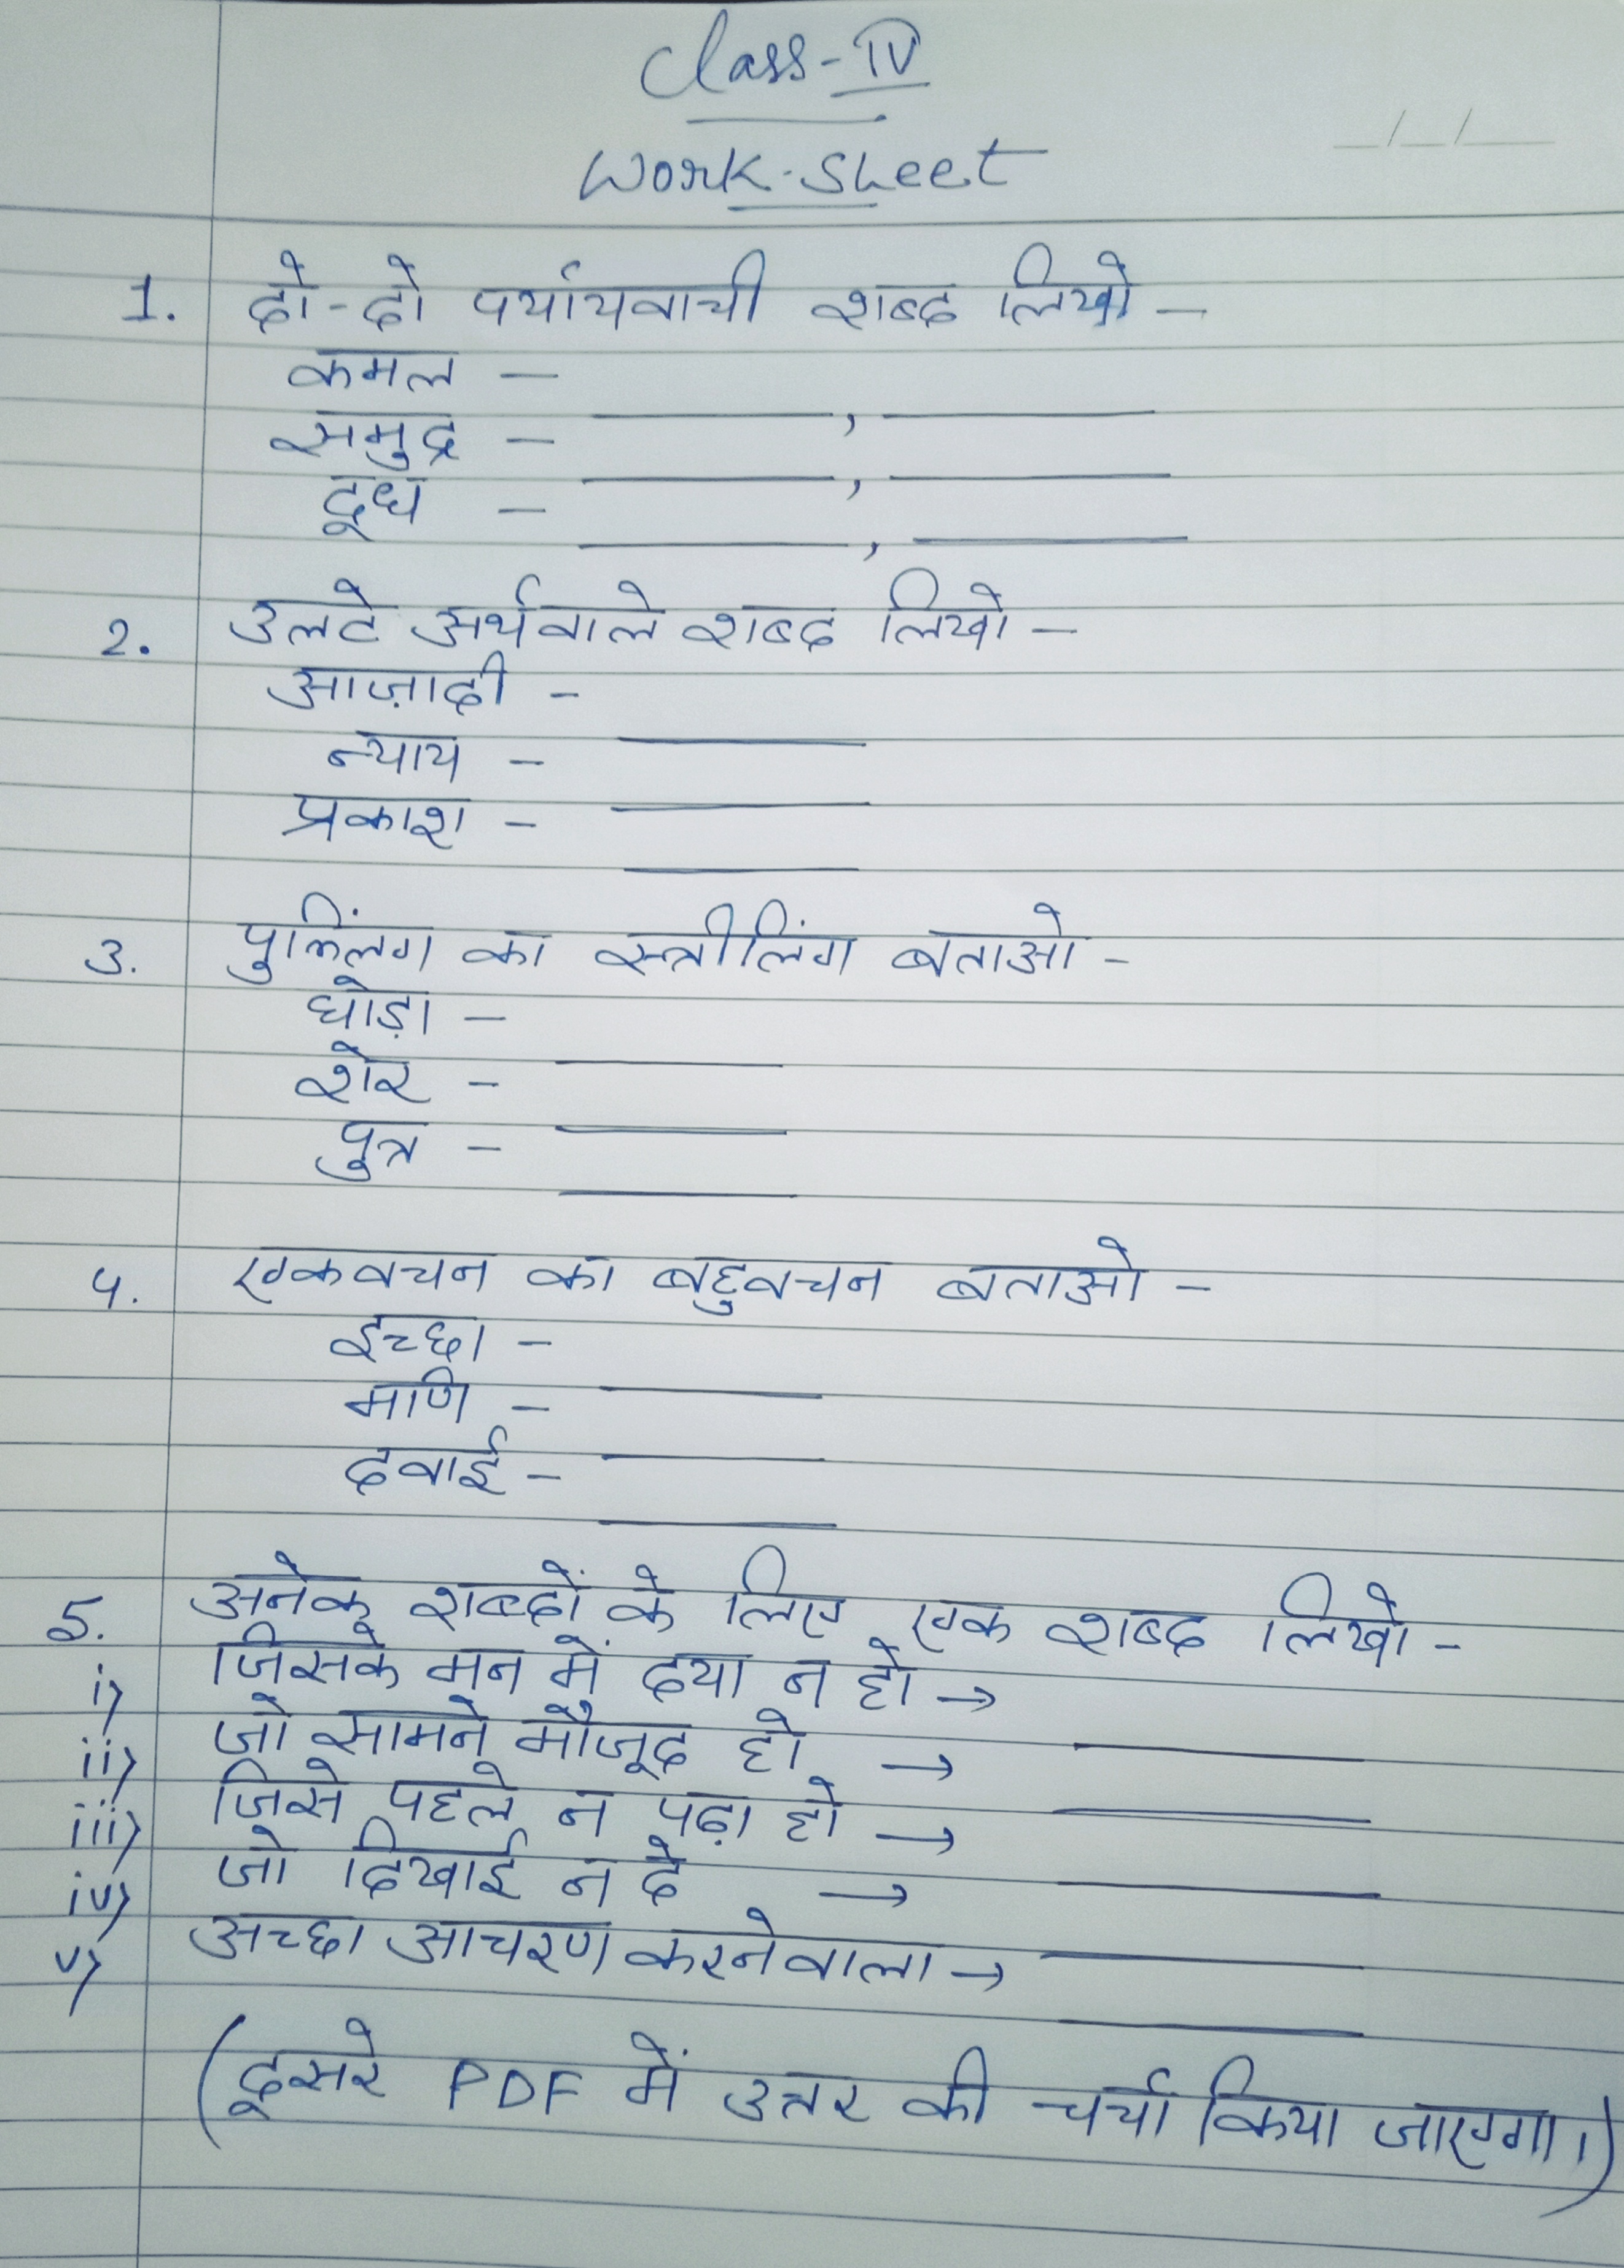 Class-IV
Work-Sheet
1. दो-दो पर्यायवाची शब्द लिखो-
कमल -
समुद्र - ______, ______
दूध - ______, ______
______, ______
2. उलटे अर्थवाले शब्द लिखो-
आज़ादी -
न्याय - ______
प्रकाश - ______
______
3. पुल्लिंग का स्त्रीलिंग बताओ-
घोड़ा -
शेर - ______
पुत्र - ______
______
4. एकवचन का बहुवचन बताओ-
इच्छा -
मणि - ______
दवाई - ______
______
5. अनेक शब्दों के लिए एक शब्द लिखो-
i) जिसके मन में दया न हो →
ii) जो सामने मौजूद हो → ______
iii) जिसे पहले न पढ़ा हो → ______
iv) जो दिखाई न दे → ______
v) अच्छा आचरण करनेवाला → ______
______
(दूसरे PDF में उत्तर की चर्चा किया जाएगा।)